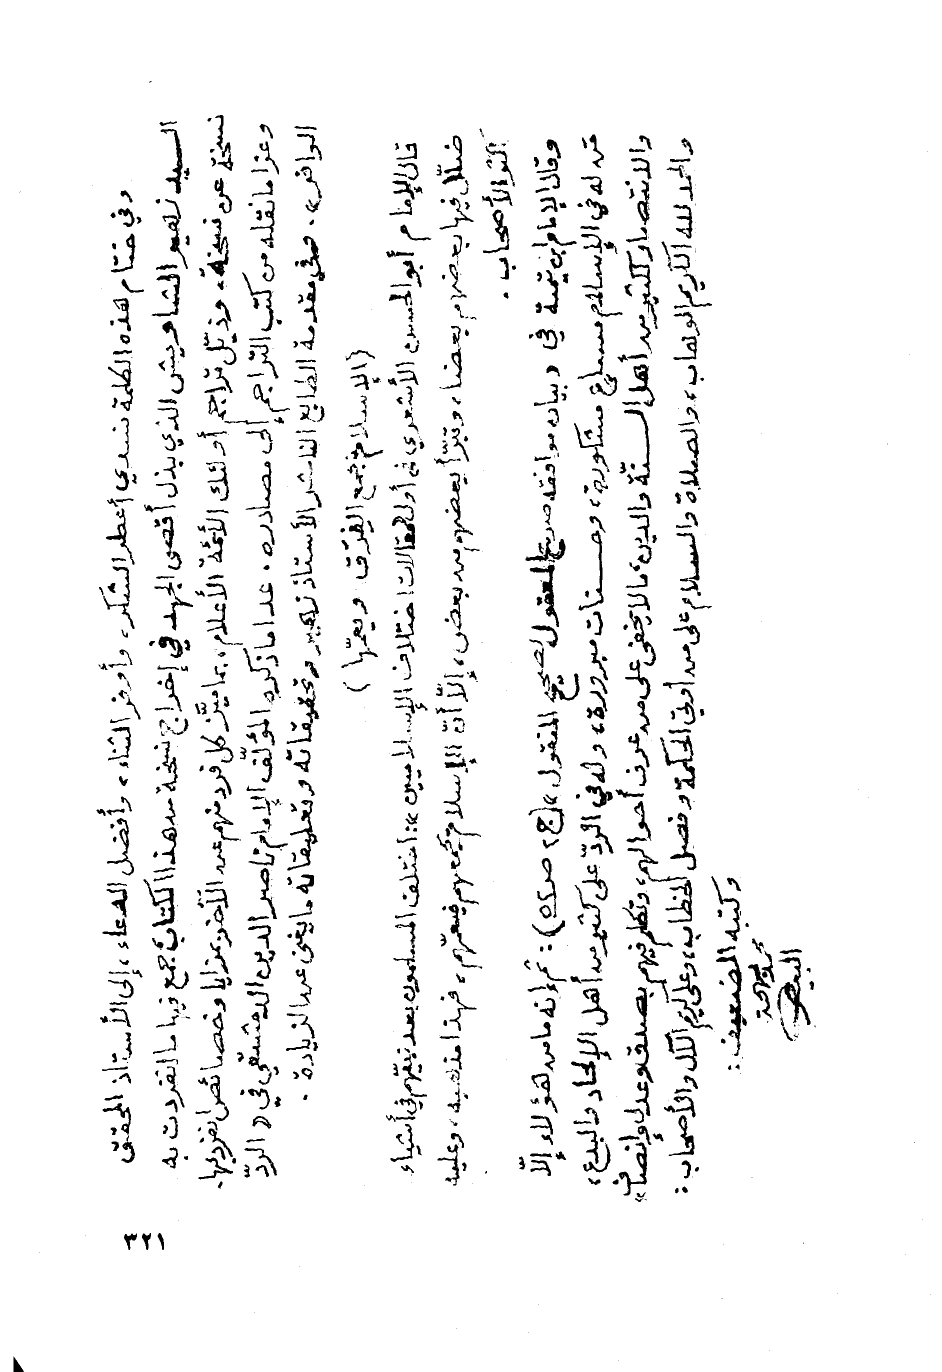 وفي ختام هذه الكلمة نسدي أعطر الشكر، وأوفر الثناء، وأفضل الدعاء، إلى الأستاذ المحقق
السيد زهير الشاويش الذي بذل أقصى الجهد في إخراج نسخة من هذا الكتاب جمع فيها ما انفردت به
نسخة عن نسخة، وذيّل تراجم أولئك الأئمة الأعلام، بما ميّز كل فرد منهم عن الآخر بمزايا وخصائص انفرد بها.
وعزا ما نقله من كتب التراجم إلى مصادره. عدا ما ذكره المؤلّف الإمام ناصر الدين الدمشقي في «الردّ
الوافر». وفي مقدمة الطابع الناشر الأستاذ زهير وتحقيقاته وتعليقاته ما يغني عن الزيادة.
(الإسلام يجمع الفِرَق ويعمّها)
قال الإمام أبو الحسن الأشعري في أول مقالات اختلاف الإسلاميين»: اختلف المسلمون بعد نبيّهم في أشياء
ضلّل فيها بعضهم بعضا، وتبرّأ بعضهم من بعض، إلّا أنّ الإسلام يجمعهم فيعمّهم، فهذا مذهبه، وعليه
أكثر الأصحاب.
وقال الإمام ابن تيمية في «بيان موافقة صريح المعقول لصحيح المنقول» (ج٢ ص٥٢): ثم إنه ما من هؤلاء إلّا
من له في الإسلام مساعٍ مشكورة، وحسنات مبرورة، وله في الردّ على كثير من أهل الإلحاد والبدع،
والانتصار لكثير من أهل السنّة والدين، ما لا يخفى على من عرف أحوالهم، وتكلم فيهم بصدق وعدل وإنصاف»
والحمد لله الكريم الوهاب، والصلاة والسلام على من أوتي الحكمة وفصل الخطاب، وعلى كريم الآل والأصحاب:
وكتبه الضعيف:
محمد بهجة
البيطار
٣٢١